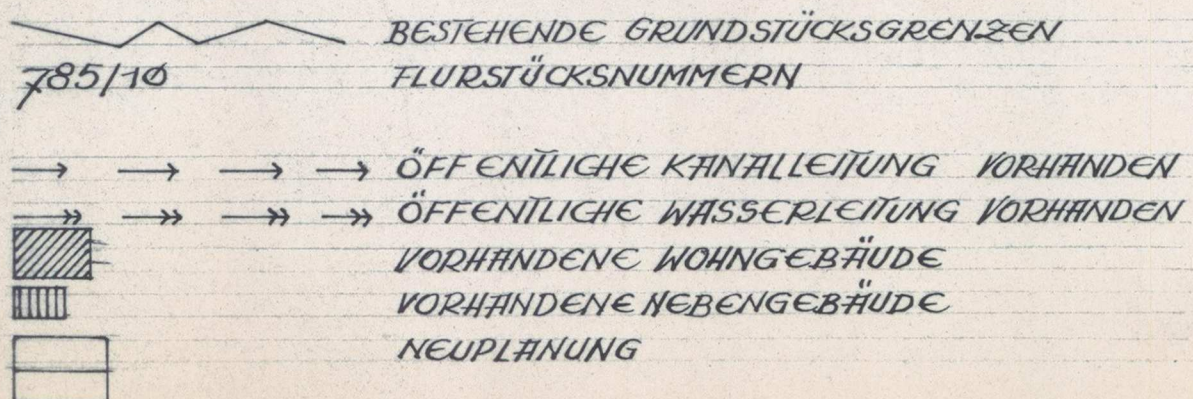 BESTEHENDE GRUNDSTÜCKSGRENZEN
785/10 FLURSTÜCKSNUMMERN
ÖFFENTLICHE KANALLEITUNG VORHANDEN
ÖFFENTLICHE WASSERLEITUNG VORHANDEN
VORHANDENE WOHNGEBÄUDE
VORHANDENE NEBENGEBÄUDE
NEUPLANUNG